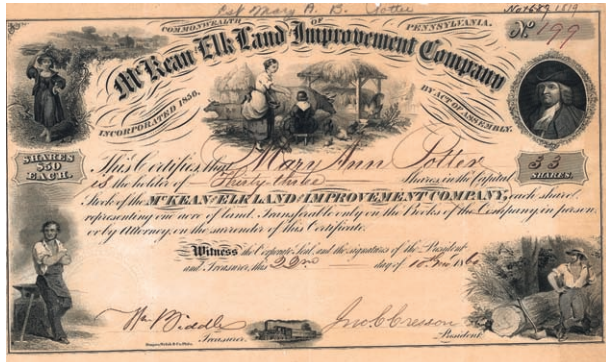 Est Mary A. B. Potter
COMMONWEALTH OF PENNSYLVANIA.
No 199
McKean & Elk Land Improvement Company
INCORPORATED 1856.
BY ACT OF ASSEMBLY.
SHARES $50 EACH.
33 SHARES.
This Certifies, that Mary Ann Potter
is the holder of Thirty three Shares in the Capital
Stock of the McKEAN & ELK LAND IMPROVEMENT COMPANY, each share
representing one acre of land. Transferable only on the Books of the Company, in person
or by Attorney, on the surrender of this Certificate.
Witness the Corporate Seal, and the signatures of the President
and Treasurer, this 22nd day of 186
Wm Biddle Treasurer.
Jno C Cresson President.